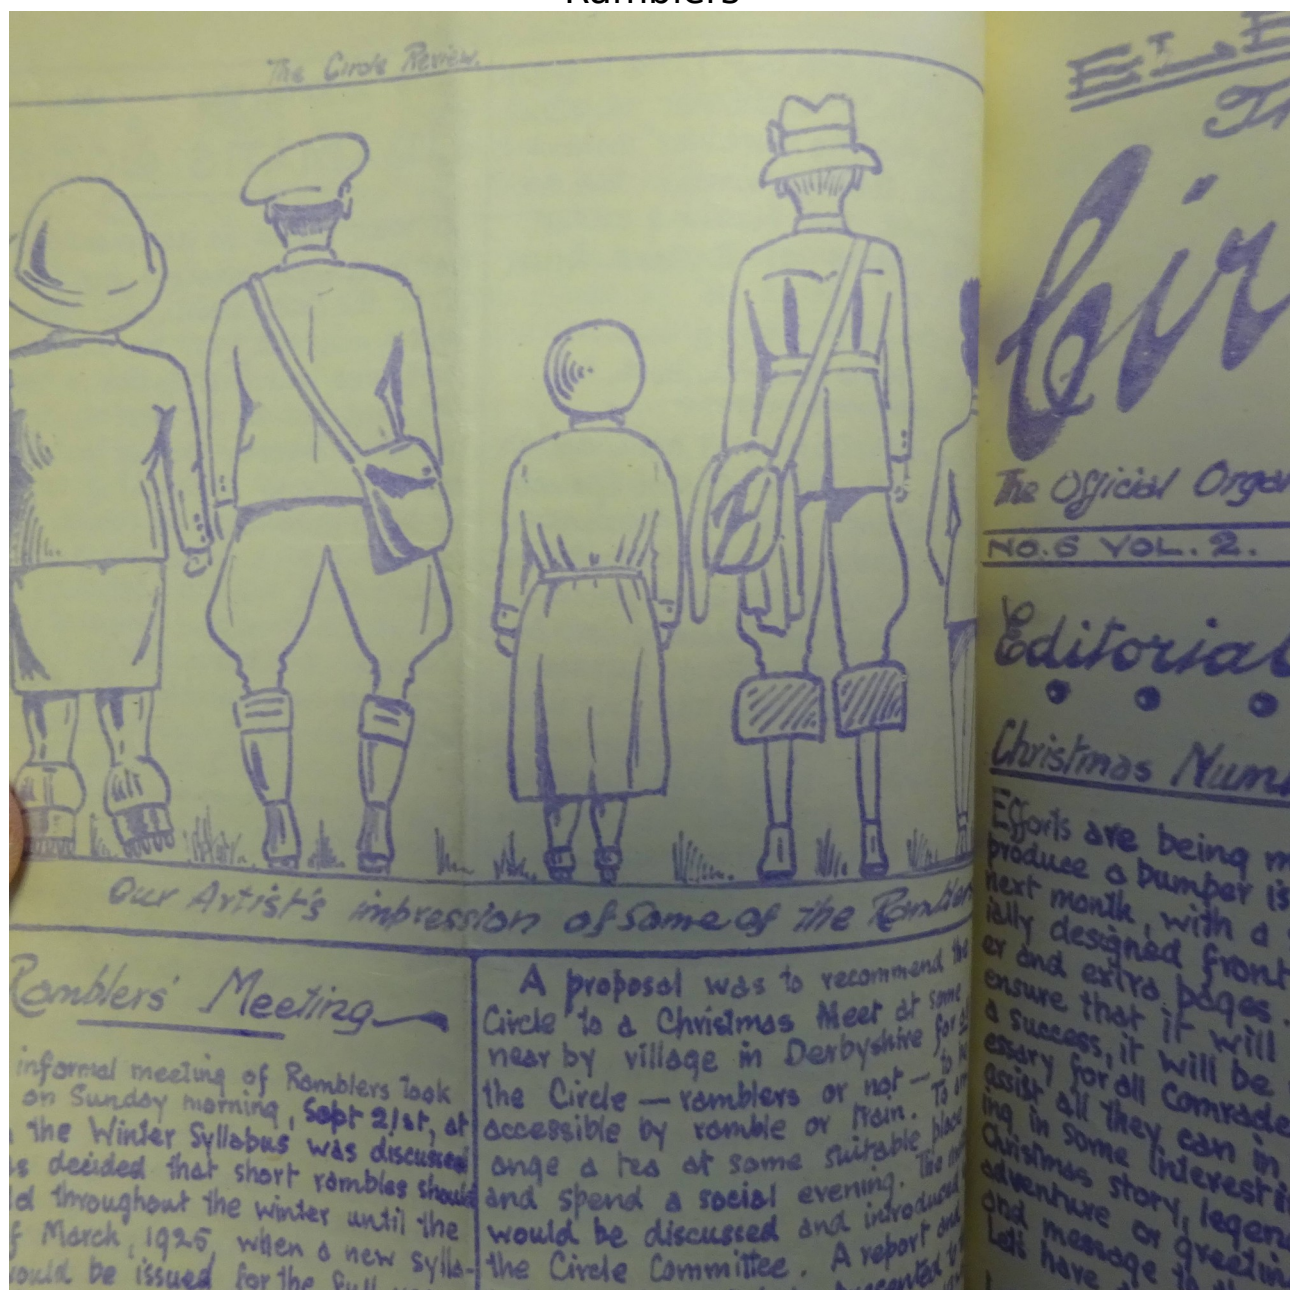 Ramblers
The Circle Review.
Our Artist's impression of Some of the Ramblers
Ramblers' Meeting
informal meeting of Ramblers took
on Sunday morning, Sept 21st, at
the Winter Syllabus was discussed
decided that short rambles should
throughout the winter until the
March, 1925, when a new sylla-
would be issued for the full
A proposal was to recommend the
Circle to a Christmas Meet at some
near by village in Derbyshire for all
the Circle — ramblers or not — to be
accessible by ramble or train. To
ange a tea at some suitable place
and spend a social evening. The
would be discussed and introduced
the Circle Committee. A report and
presented
The
Cir
The Official Organ
NO.6 VOL.2.
Editorial
Christmas Num
Efforts are being m
produce a bumper is
next month, with a
ially designed front
er and extra pages.
ensure that it will
a success, it will be
essary for all Comrade
assist all they can in
ing in some interesti
Christmas story, legen
adventure or greetin
and message to the
Let's have